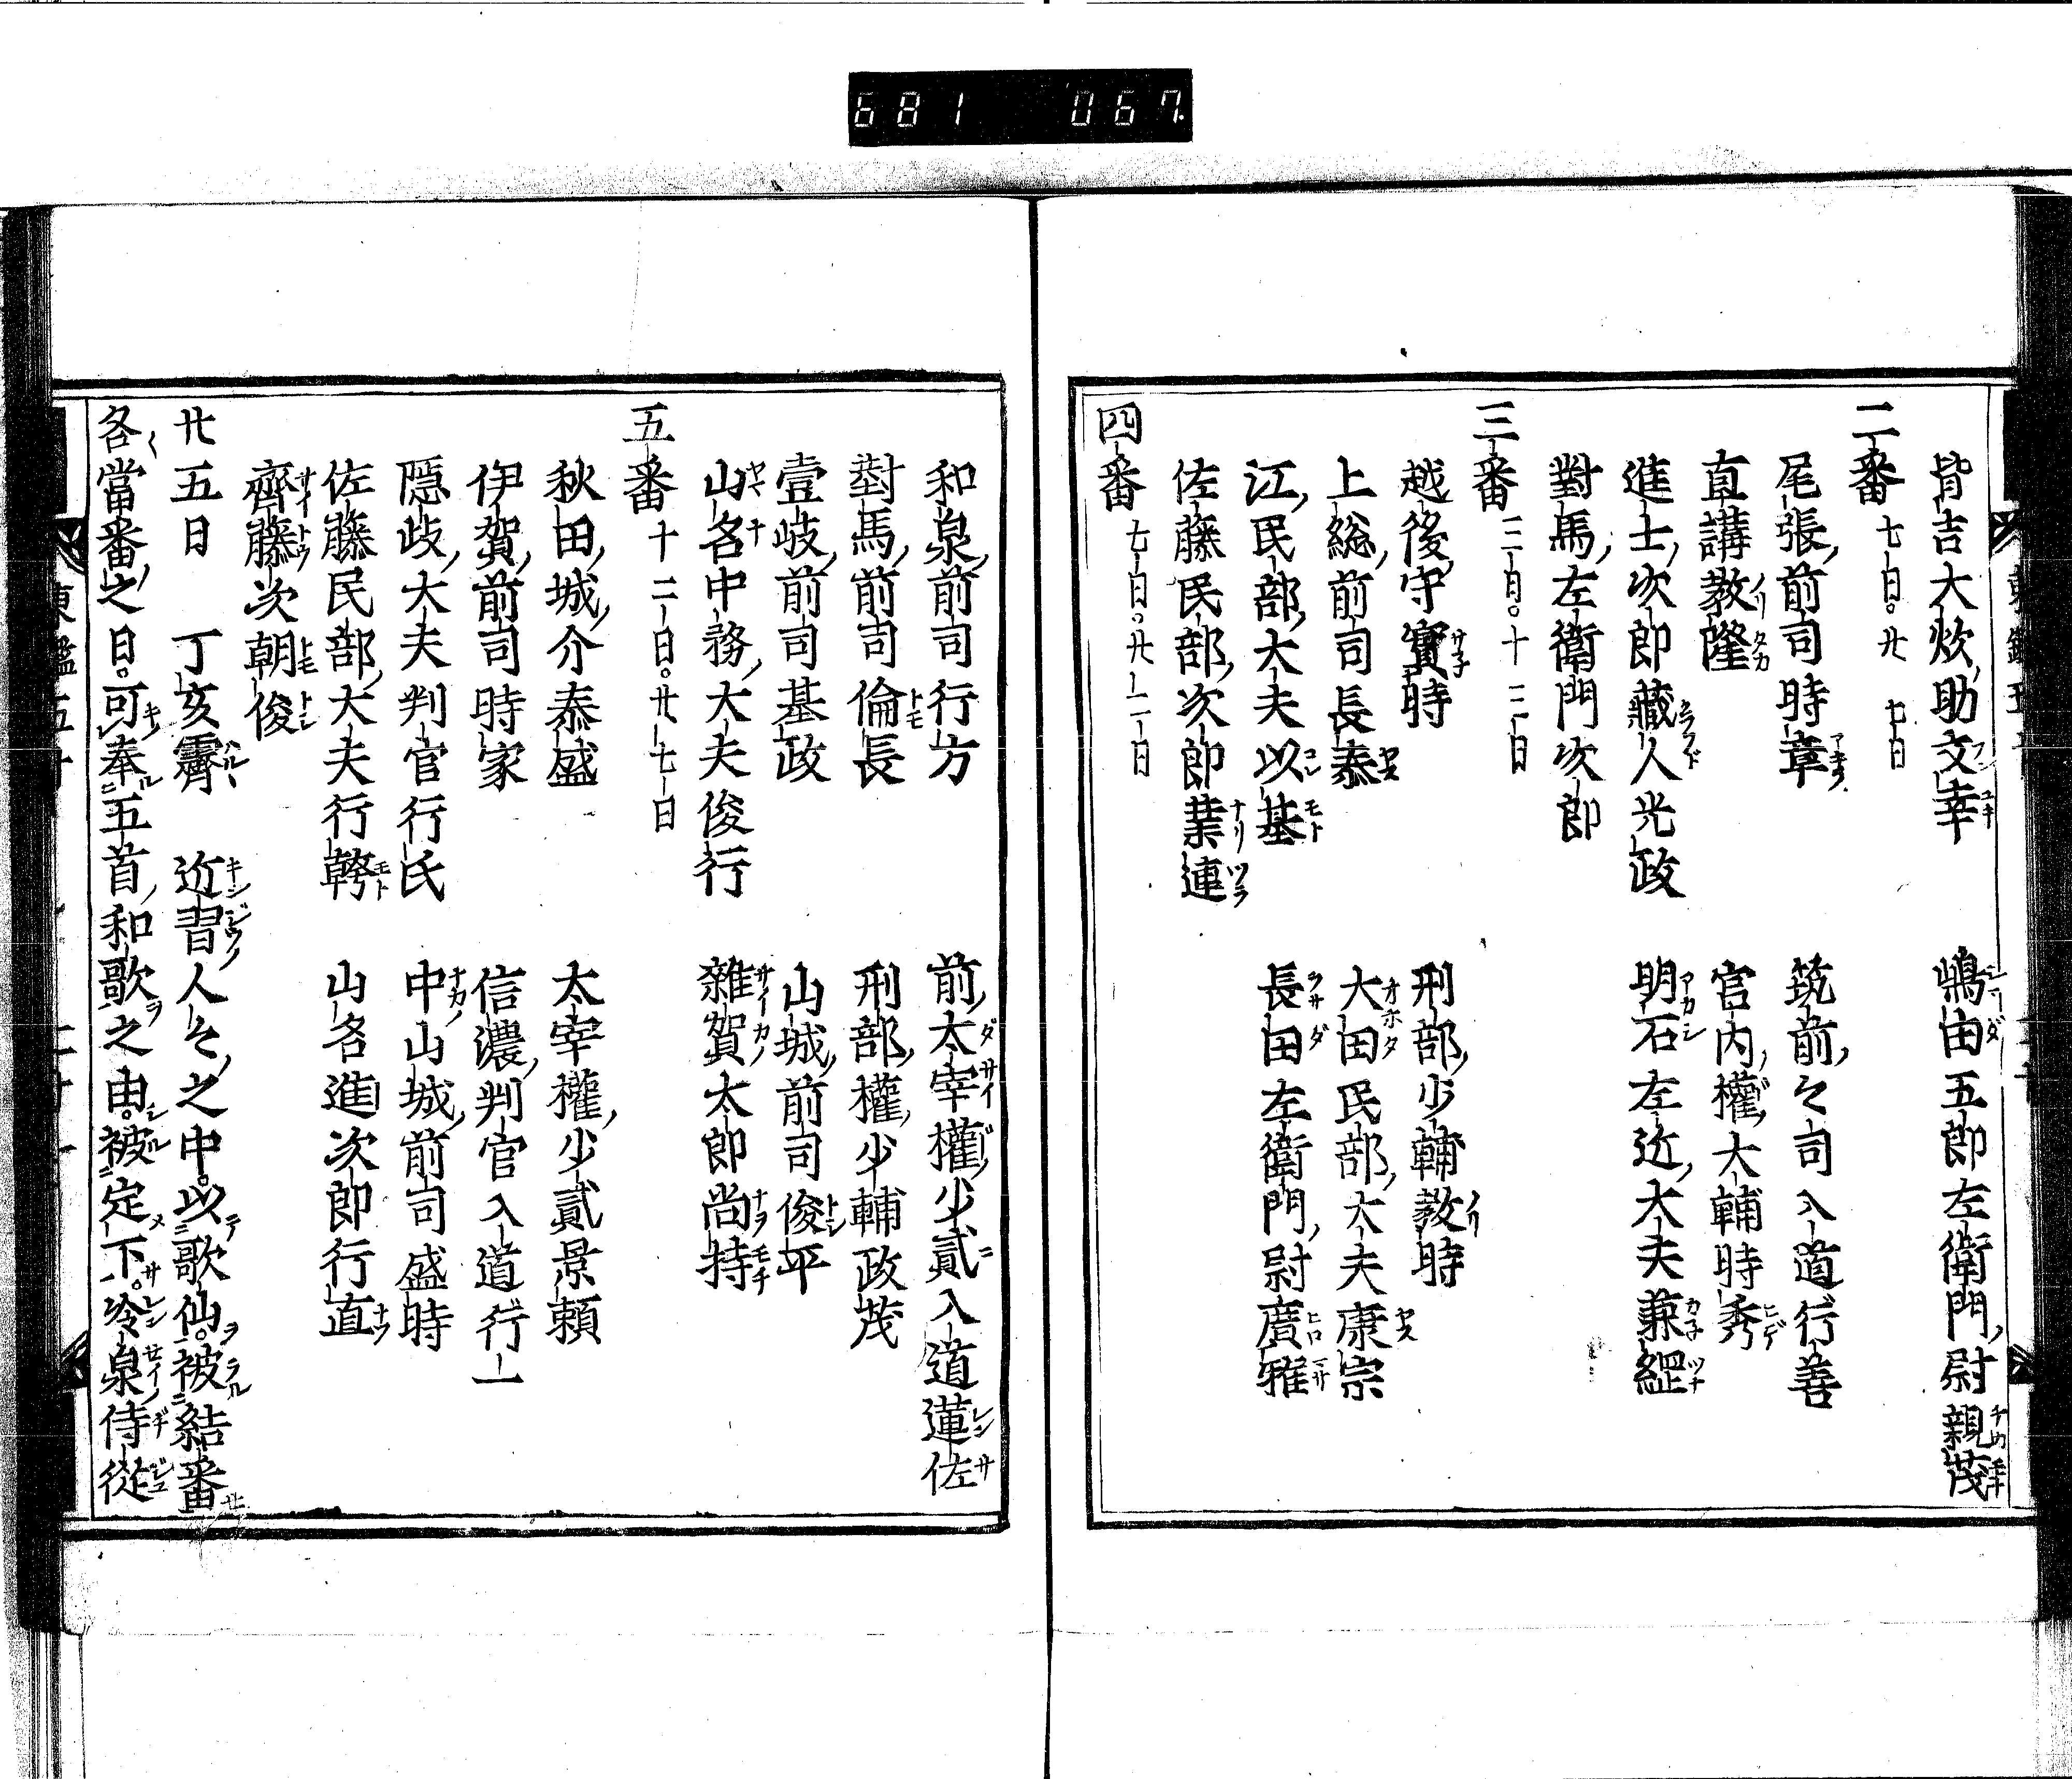 皆吉大炊助文幸　嶋田五郎左衛門尉親茂
二番　七日。廿七日
尾張前司時章　筑前〻司入道行善
直講教隆　宮内權大輔時秀
進士次郎藏人光政　明石左近大夫兼綱
對馬左衛門次郎
三番　三日。十三日
越後守實時　刑部少輔教時
上総前司長泰　大田民部大夫康宗
江民部大夫以基　長田左衛門尉廣雅
佐藤民部次郎業連
四番　七日。廿二日
和泉前司行方　前太宰權少貳入道蓮佐
對馬前司倫長　刑部權少輔政茂
壹岐前司基政　山城前司俊平
山名中務大夫俊行　雜賀太郎尚持
五番　十二日。廿七日
秋田城介泰盛　太宰權少貳景頼
伊賀前司時家　信濃判官入道行一
隠岐大夫判官行氏　中山城前司盛時
佐藤民部大夫行幹　山名進次郎行直
齊藤次朝俊
廿五日　丁亥霽　近習人〻之中。以歌仙。被結番
各當番之日。可奉五首和歌之由。被定下。冷泉侍從
681 067